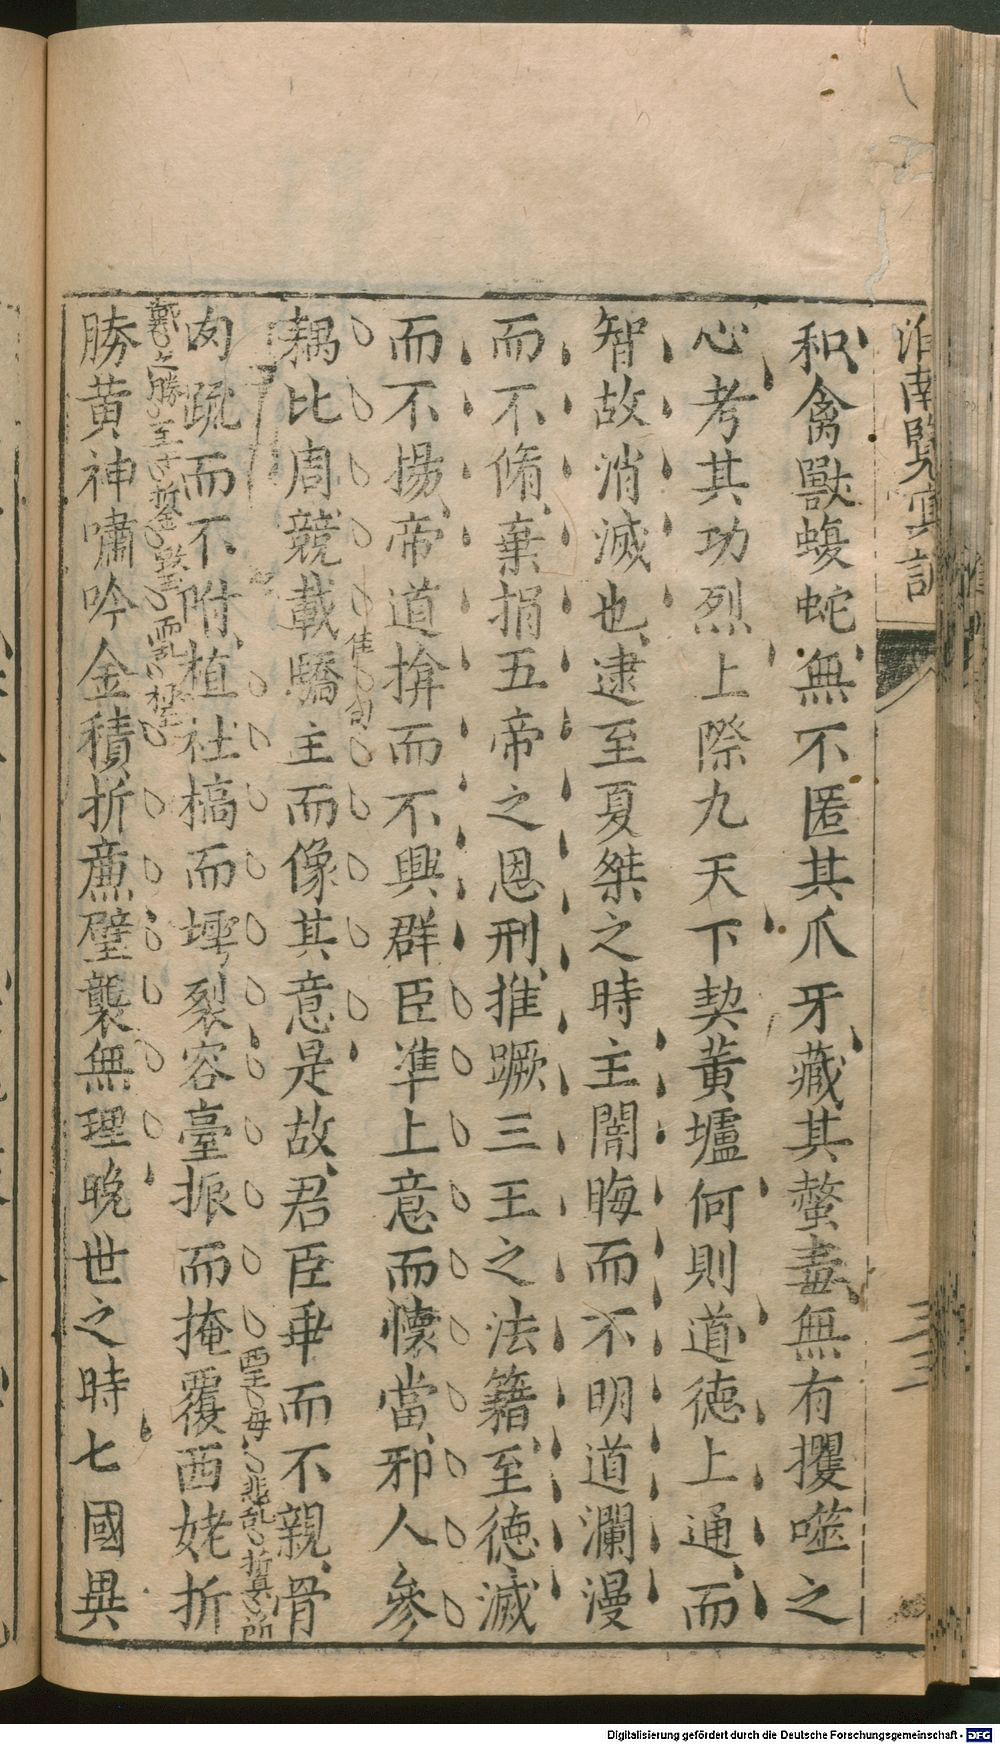 淮南覽冥訓
三
和禽獸蝮蛇無不匿其爪牙藏其螫毒無有攫噬之
心考其功烈上際九天下契黃壚何則道德上通而
智故消滅也逮至夏桀之時主闇晦而不明道瀾漫
而不脩棄捐五帝之恩刑推蹶三王之法籍至德滅
而不揚帝道揜而不興群臣準上意而懷當邪人參
佳句
耦比周競載驕主而像其意是故君臣乖而不親骨
肉疏而不附植社槁而㙤裂容臺振而掩覆西姥折
勝黃神嘯吟金積折廉璧襲無理晚世之時七國異
Digitalisierung gefördert durch die Deutsche Forschungsgemeinschaft - DFG